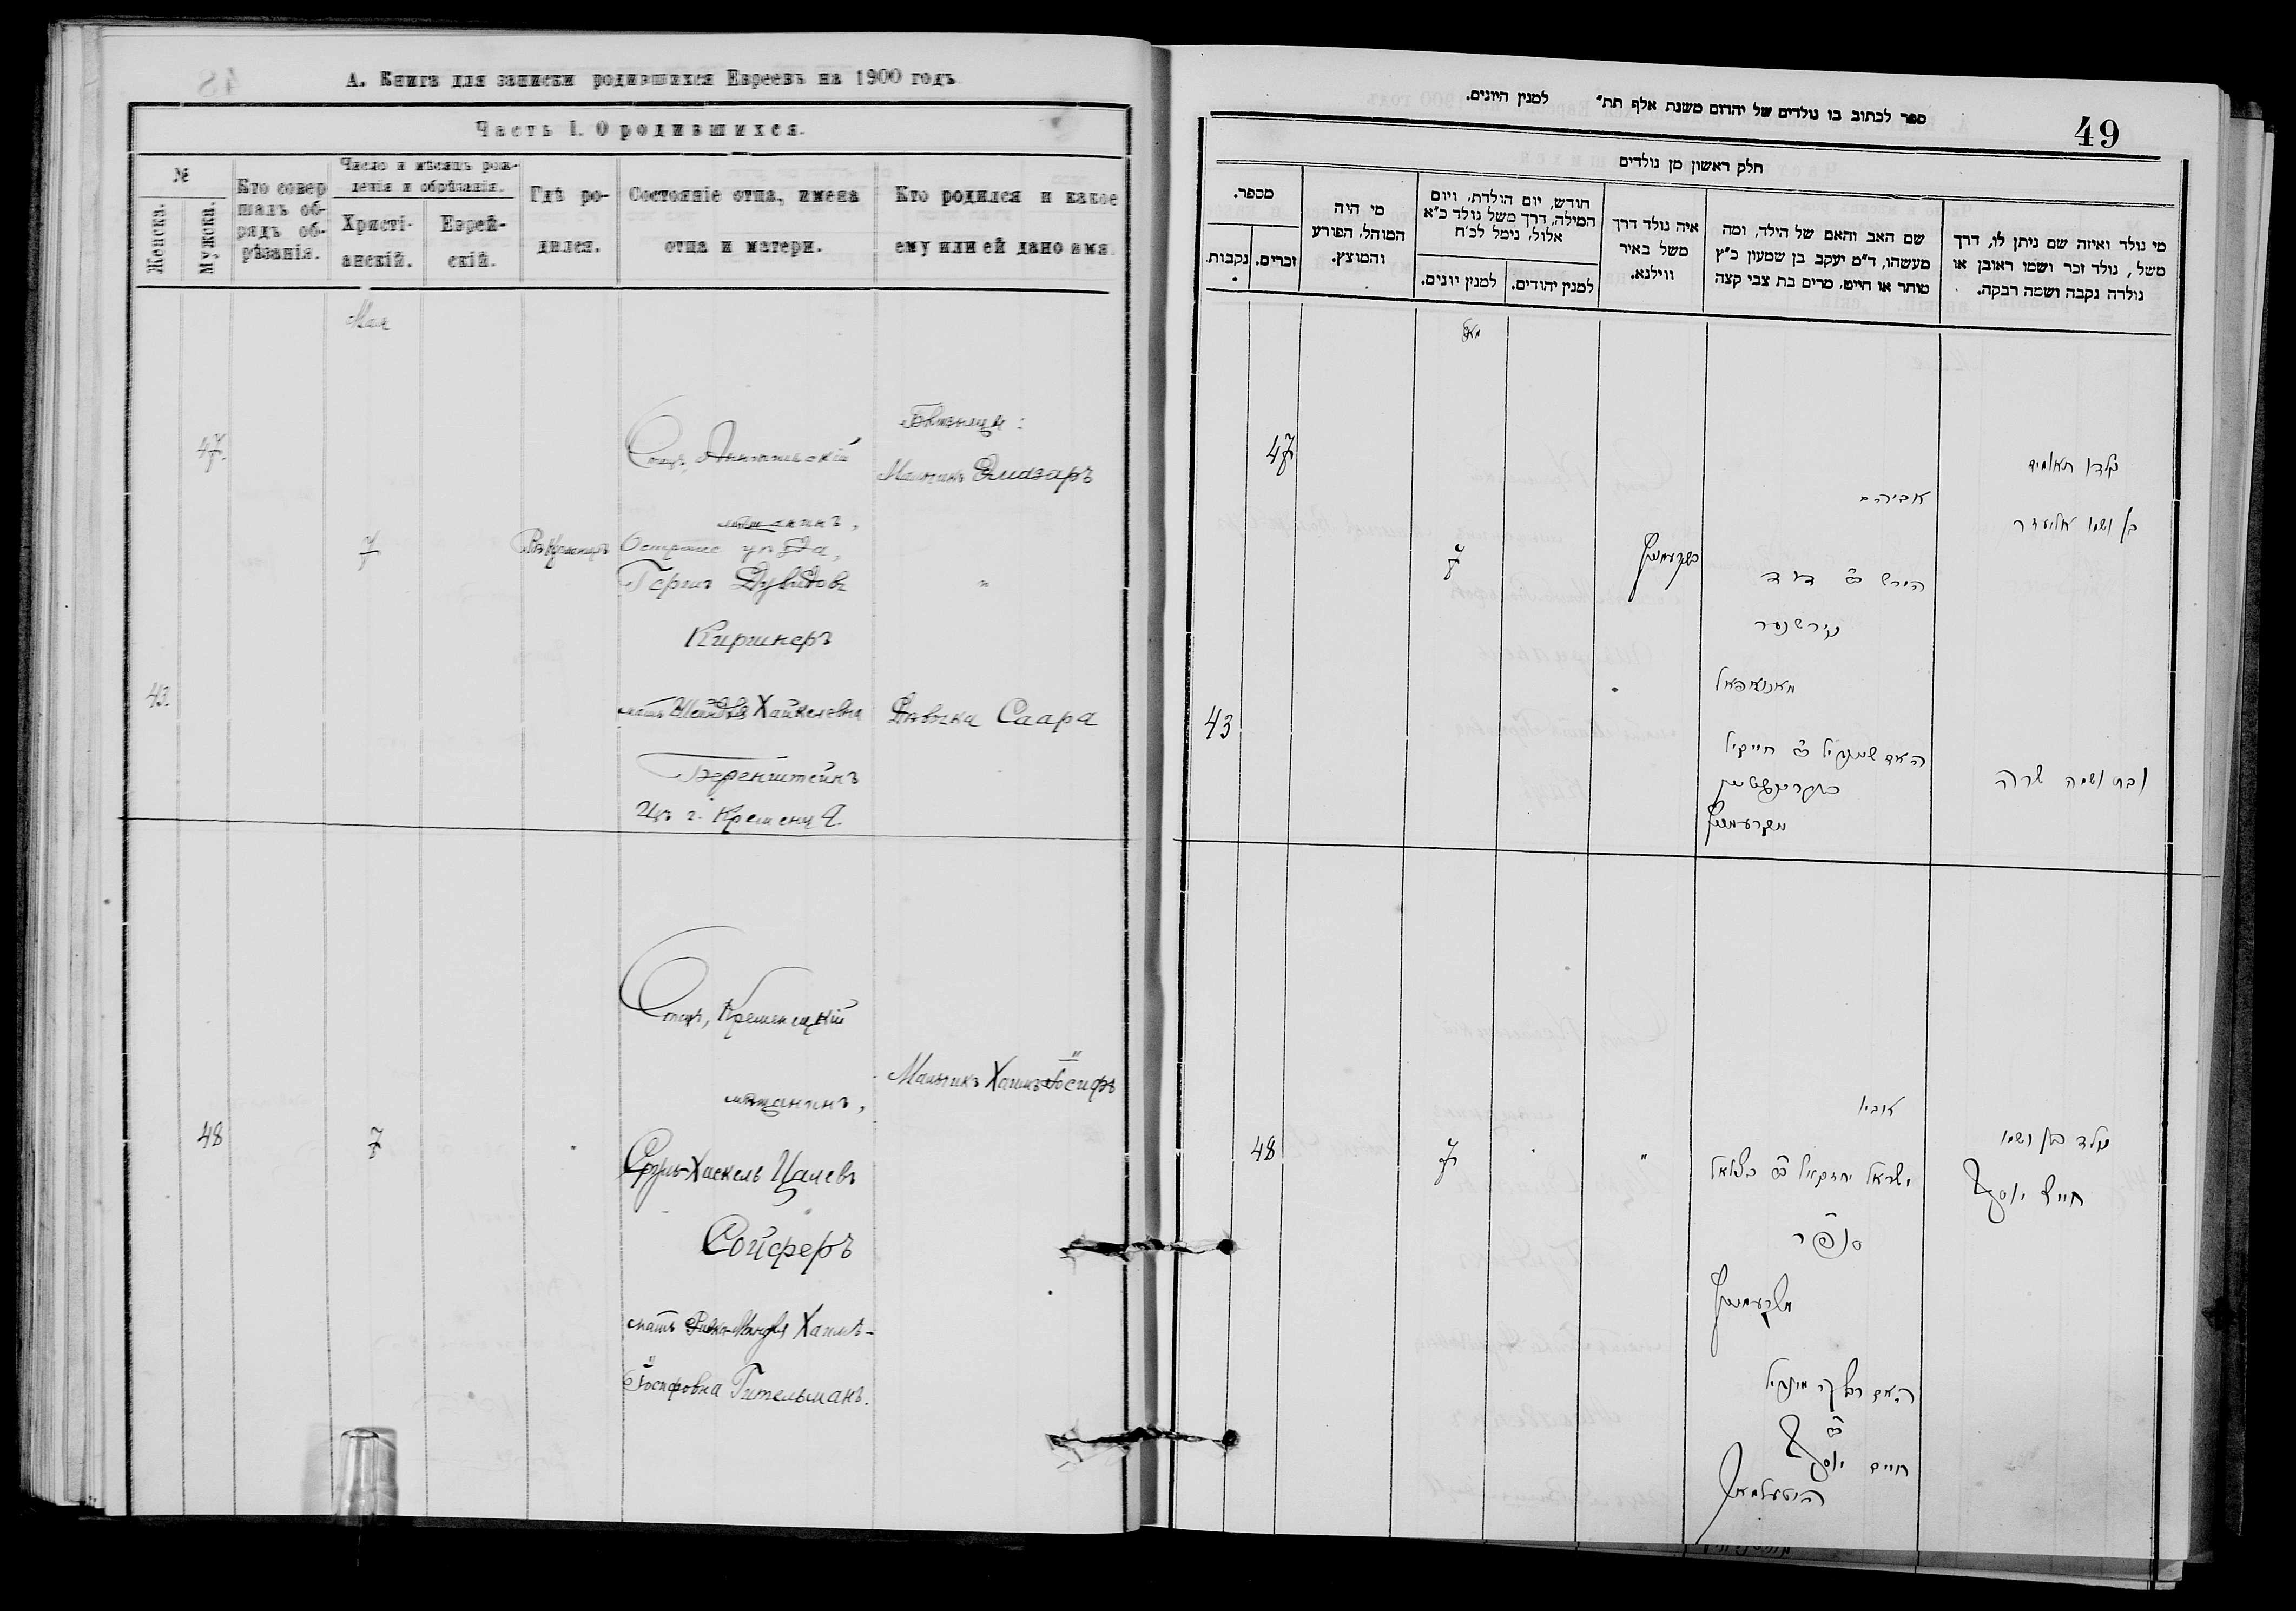 А. Книга для записки родившихся Евреевъ на 1900 годъ
Часть I. О родившихся.
№
Женска.
Мужска.
Кто совер
шалъ об-
рядъ об-
рѣзанія.
Число и мѣсяцъ рож-
денія и обрѣзанія.
Христі-
анскій.
Еврей-
скій.
Гдѣ ро-
дился.
Состояніе отца, имена
отца и матери.
Кто родился и какое
ему или ей дано имя.
Мая
47.
7
Отецъ,
мѣщанинъ,
уѣзда,
Гершъ Дувидовъ
Киршнеръ
Близнецы:
Мальчикъ Элиазаръ
"
43.
мать Шейндля Хайкелевна
Беренштейнъ
Изъ г. Кременца.
Дѣвочка Саара
48
7
Отецъ, Кременецкій
мѣщанинъ,
Сруль-Хаскель Цалевъ
Сойферъ
мать Ривка-Миндля Хаимъ-
Іосифовна Гительманъ.
Мальчикъ Хаимъ-Іосифъ
49
ספר לכתוב בו נולדים של יהודים משנת אלף תת״ למנין היונים.
חלק ראשון מן נולדים
מספר.
נקבות.
זכרים.
מי היה
המוהל, הפורע
והמוצץ.
חודש, יום הולדת, ויום
המילה, דרך משל נולד כ״א
אלול, נימל לכ״ח
למנין יונים.
למנין יהודים.
איה נולד דרך
משל באיר
ווילנא.
שם האב והאם של הילד, ומה
מעשהו, ד״מ יעקב בן שמעון כ״ץ
סוחר או חייט, מרים בת צבי קצה
מי נולד ואיזה שם ניתן לו, דרך
משל, נולד זכר ושמו ראובן או
נולדה נקבה ושמה רבקה.
מאי
47
7
אביהם
הירש ב״ר דוד
קירשנער
בן ושמו אליעזר
43
האם שיינדיל ב״ר חייקיל
ובת ושמה שרה
48
7
"
אביו
ישראל יחזקאל ב״ר בצלאל
סופר
נולד בן ושמו
חיים יוסף
האם רבקה מינדיל
ב״ר
חיים יוסף
גיטעלמאן